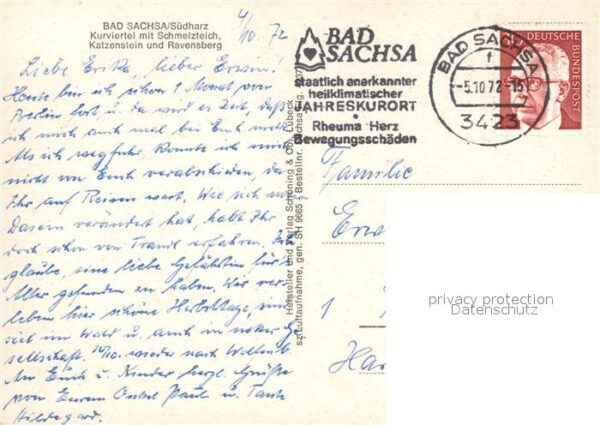 BAD SACHSA/Südharz
Kurviertel mit Schmelzteich,
Katzenstein und Ravensberg
4/10. 72
Liebe Erika, lieber Erwin!
Heute bin ich schon 1 Monat von
Berlin fort u. da wird es Zeit, daß
ich mich auch mal bei Euch melde.
Als ich wegfuhr konnte ich mich
nicht von Euch verabschieden, da
Ihr auf Reisen wart. Wie sich mein
Dasein verändert hat, habt Ihr
doch schon von Traudl erfahren. Ich
glaube, eine liebe Gefährtin für's
Alter gefunden zu haben. Wir ver-
leben hier schöne Herbsttage, sind
viel im Wald u. auch in netter Ge-
sellschaft. 14/10. wieder nach
An Euch u. Kinder herzl. Grüße
von Eurem Onkel Paul u. Tante
Hildegard.
Hersteller und Verlag Schöning & Co., Lübeck
Luftaufnahme, gen. SH 9665 Bestellnr.
BAD
SACHSA
staatlich anerkannter
heilklimatischer
JAHRESKURORT
Rheuma Herz
Bewegungsschäden
BAD SACHSA
f
-5.10.72-15
3423
DEUTSCHE BUNDESPOST
Familie
Erw
1
Ha
privacy protection
Datenschutz